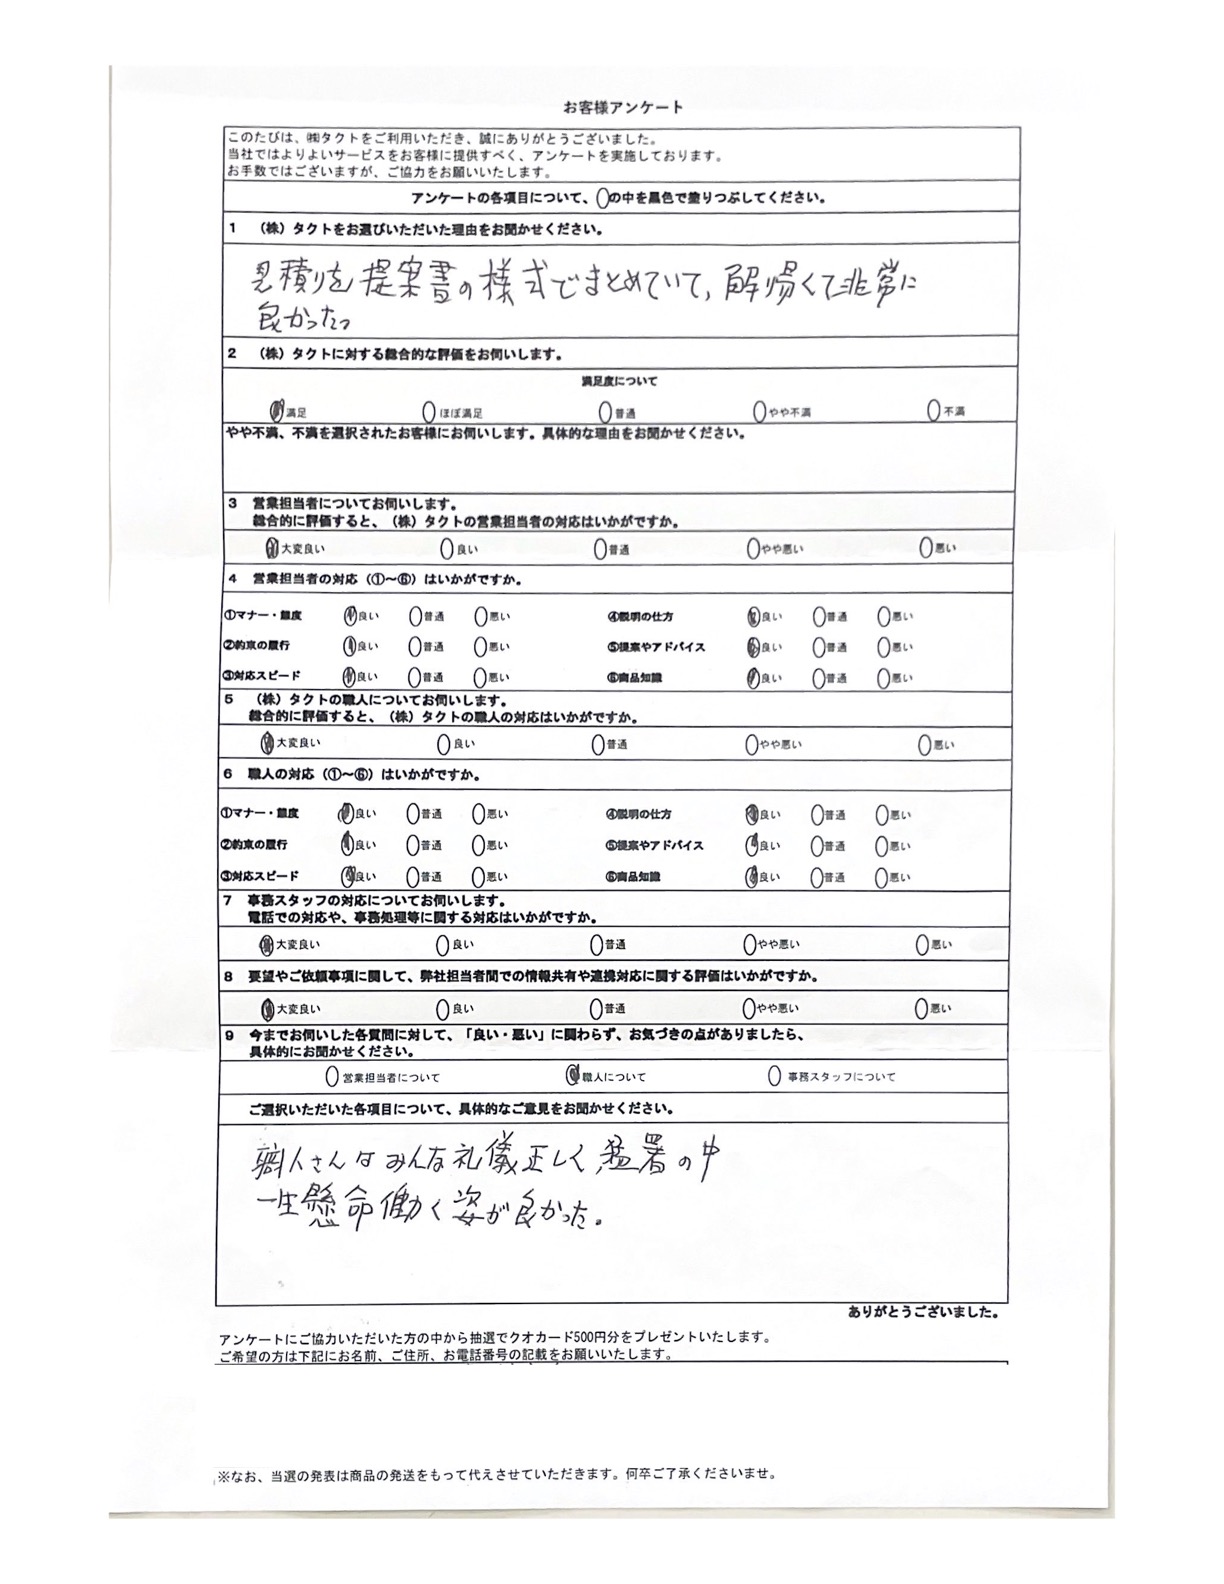 お客様アンケート
このたびは、㈱タクトをご利用いただき、誠にありがとうございました。
当社ではよりよいサービスをお客様に提供すべく、アンケートを実施しております。
お手数ではございますが、ご協力をお願いいたします。
アンケートの各項目について、○の中を黒色で塗りつぶしてください。
1 （株）タクトをお選びいただいた理由をお聞かせください。
見積りを提案書の様式でまとめていて、解り易くて非常に
良かった。
2 （株）タクトに対する総合的な評価をお伺いします。
満足度について
満足 ほぼ満足 普通 やや不満 不満
やや不満、不満を選択されたお客様にお伺いします。具体的な理由をお聞かせください。
3 営業担当者についてお伺いします。
総合的に評価すると、（株）タクトの営業担当者の対応はいかがですか。
大変良い 良い 普通 やや悪い 悪い
4 営業担当者の対応（①～⑥）はいかがですか。
①マナー・態度 良い 普通 悪い ④説明の仕方 良い 普通 悪い
②約束の履行 良い 普通 悪い ⑤提案やアドバイス 良い 普通 悪い
③対応スピード 良い 普通 悪い ⑥商品知識 良い 普通 悪い
5 （株）タクトの職人についてお伺いします。
総合的に評価すると、（株）タクトの職人の対応はいかがですか。
大変良い 良い 普通 やや悪い 悪い
6 職人の対応（①～⑥）はいかがですか。
①マナー・態度 良い 普通 悪い ④説明の仕方 良い 普通 悪い
②約束の履行 良い 普通 悪い ⑤提案やアドバイス 良い 普通 悪い
③対応スピード 良い 普通 悪い ⑥商品知識 良い 普通 悪い
7 事務スタッフの対応についてお伺いします。
電話での対応や、事務処理等に関する対応はいかがですか。
大変良い 良い 普通 やや悪い 悪い
8 要望やご依頼事項に関して、弊社担当者間での情報共有や連携対応に関する評価はいかがですか。
大変良い 良い 普通 やや悪い 悪い
9 今までお伺いした各質問に対して、「良い・悪い」に関わらず、お気づきの点がありましたら、
具体的にお聞かせください。
営業担当者について 職人について 事務スタッフについて
ご選択いただいた各項目について、具体的なご意見をお聞かせください。
職人さんはみんな礼儀正しく猛暑の中
一生懸命働く姿が良かった。
ありがとうございました。
アンケートにご協力いただいた方の中から抽選でクオカード500円分をプレゼントいたします。
ご希望の方は下記にお名前、ご住所、お電話番号の記載をお願いいたします。
※なお、当選の発表は商品の発送をもって代えさせていただきます。何卒ご了承くださいませ。